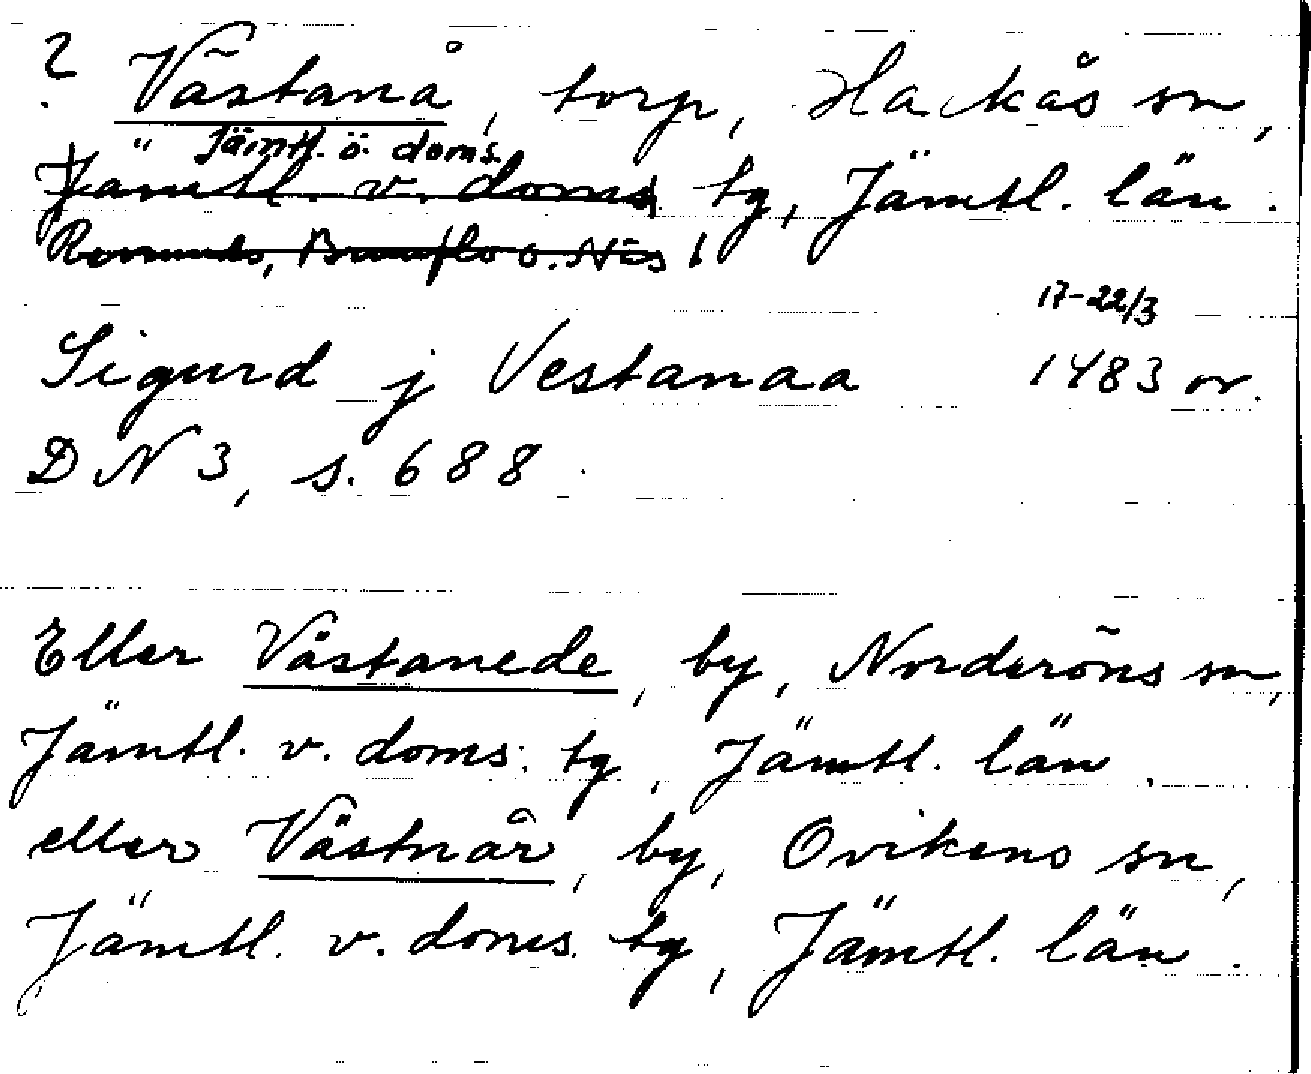 ? Västanå, torp, Hackås sn,
Jämtl. ö. doms.
Jämtl. v. doms. tg, Jämtl. län.
Revsunds, Brunflo o. Näs
17-22/3
Sigurd j Vestanaa 1483 or.
DN 3, s. 688.
Eller Västanede, by, Norderöns sn,
Jämtl. v. doms. tg, Jämtl. län.
eller Västnår, by, Ovikens sn,
Jämtl. v. doms. tg, Jämtl. län.